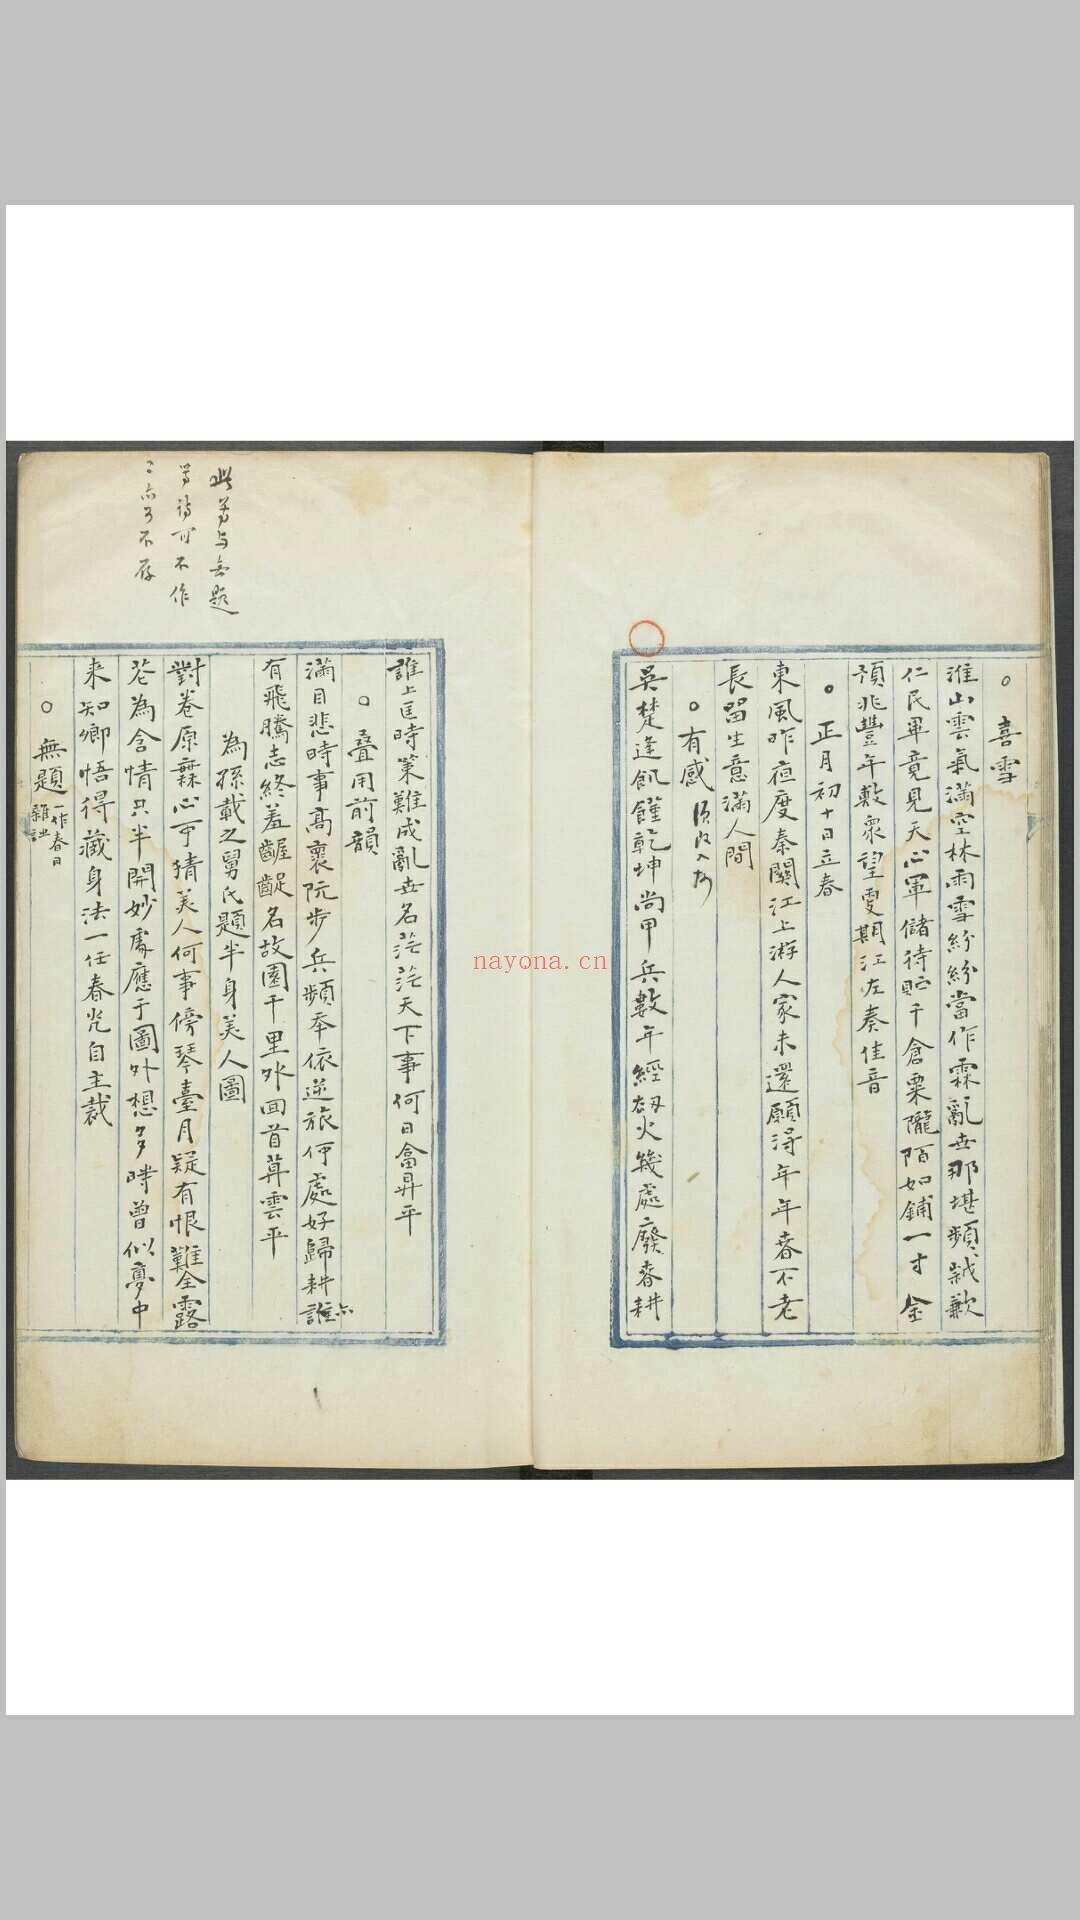 喜雪
淮山雲氣滿空林雨雪紛紛當作霖亂世那堪頻弐歉
仁民軍竟見天心軍儲待貯千倉粟隴陌如鋪一寸金
預兆豐年敷眾望更期江左奏佳音
正月初十日立春
東風昨夜度秦關江上游人家未還願得年年春不老
長留生意滿人間
有感
吳楚逢飢饉乾坤尚甲兵數年經劫火幾處廢春耕
誰上匡時策難成亂世名茫茫天下事何日會昇平
疊用前韻
滿目悲時事高裏阮步兵頻奉依逆旅何處好歸耕誰亦
有飛騰志終羞齷齪名故園千里外回首莫雲平
為孫載之舅氏題半身美人圖
對卷原無心可猜美人何事傍琴臺月疑有恨難全露
花為含情只半開妙處應于圖外想多時曾似夢中
来知卿悟得藏身法一任春光自主裁
無題一作春日雜詠
此首与無題
等詩可不作
亦可不存
nayona.cn